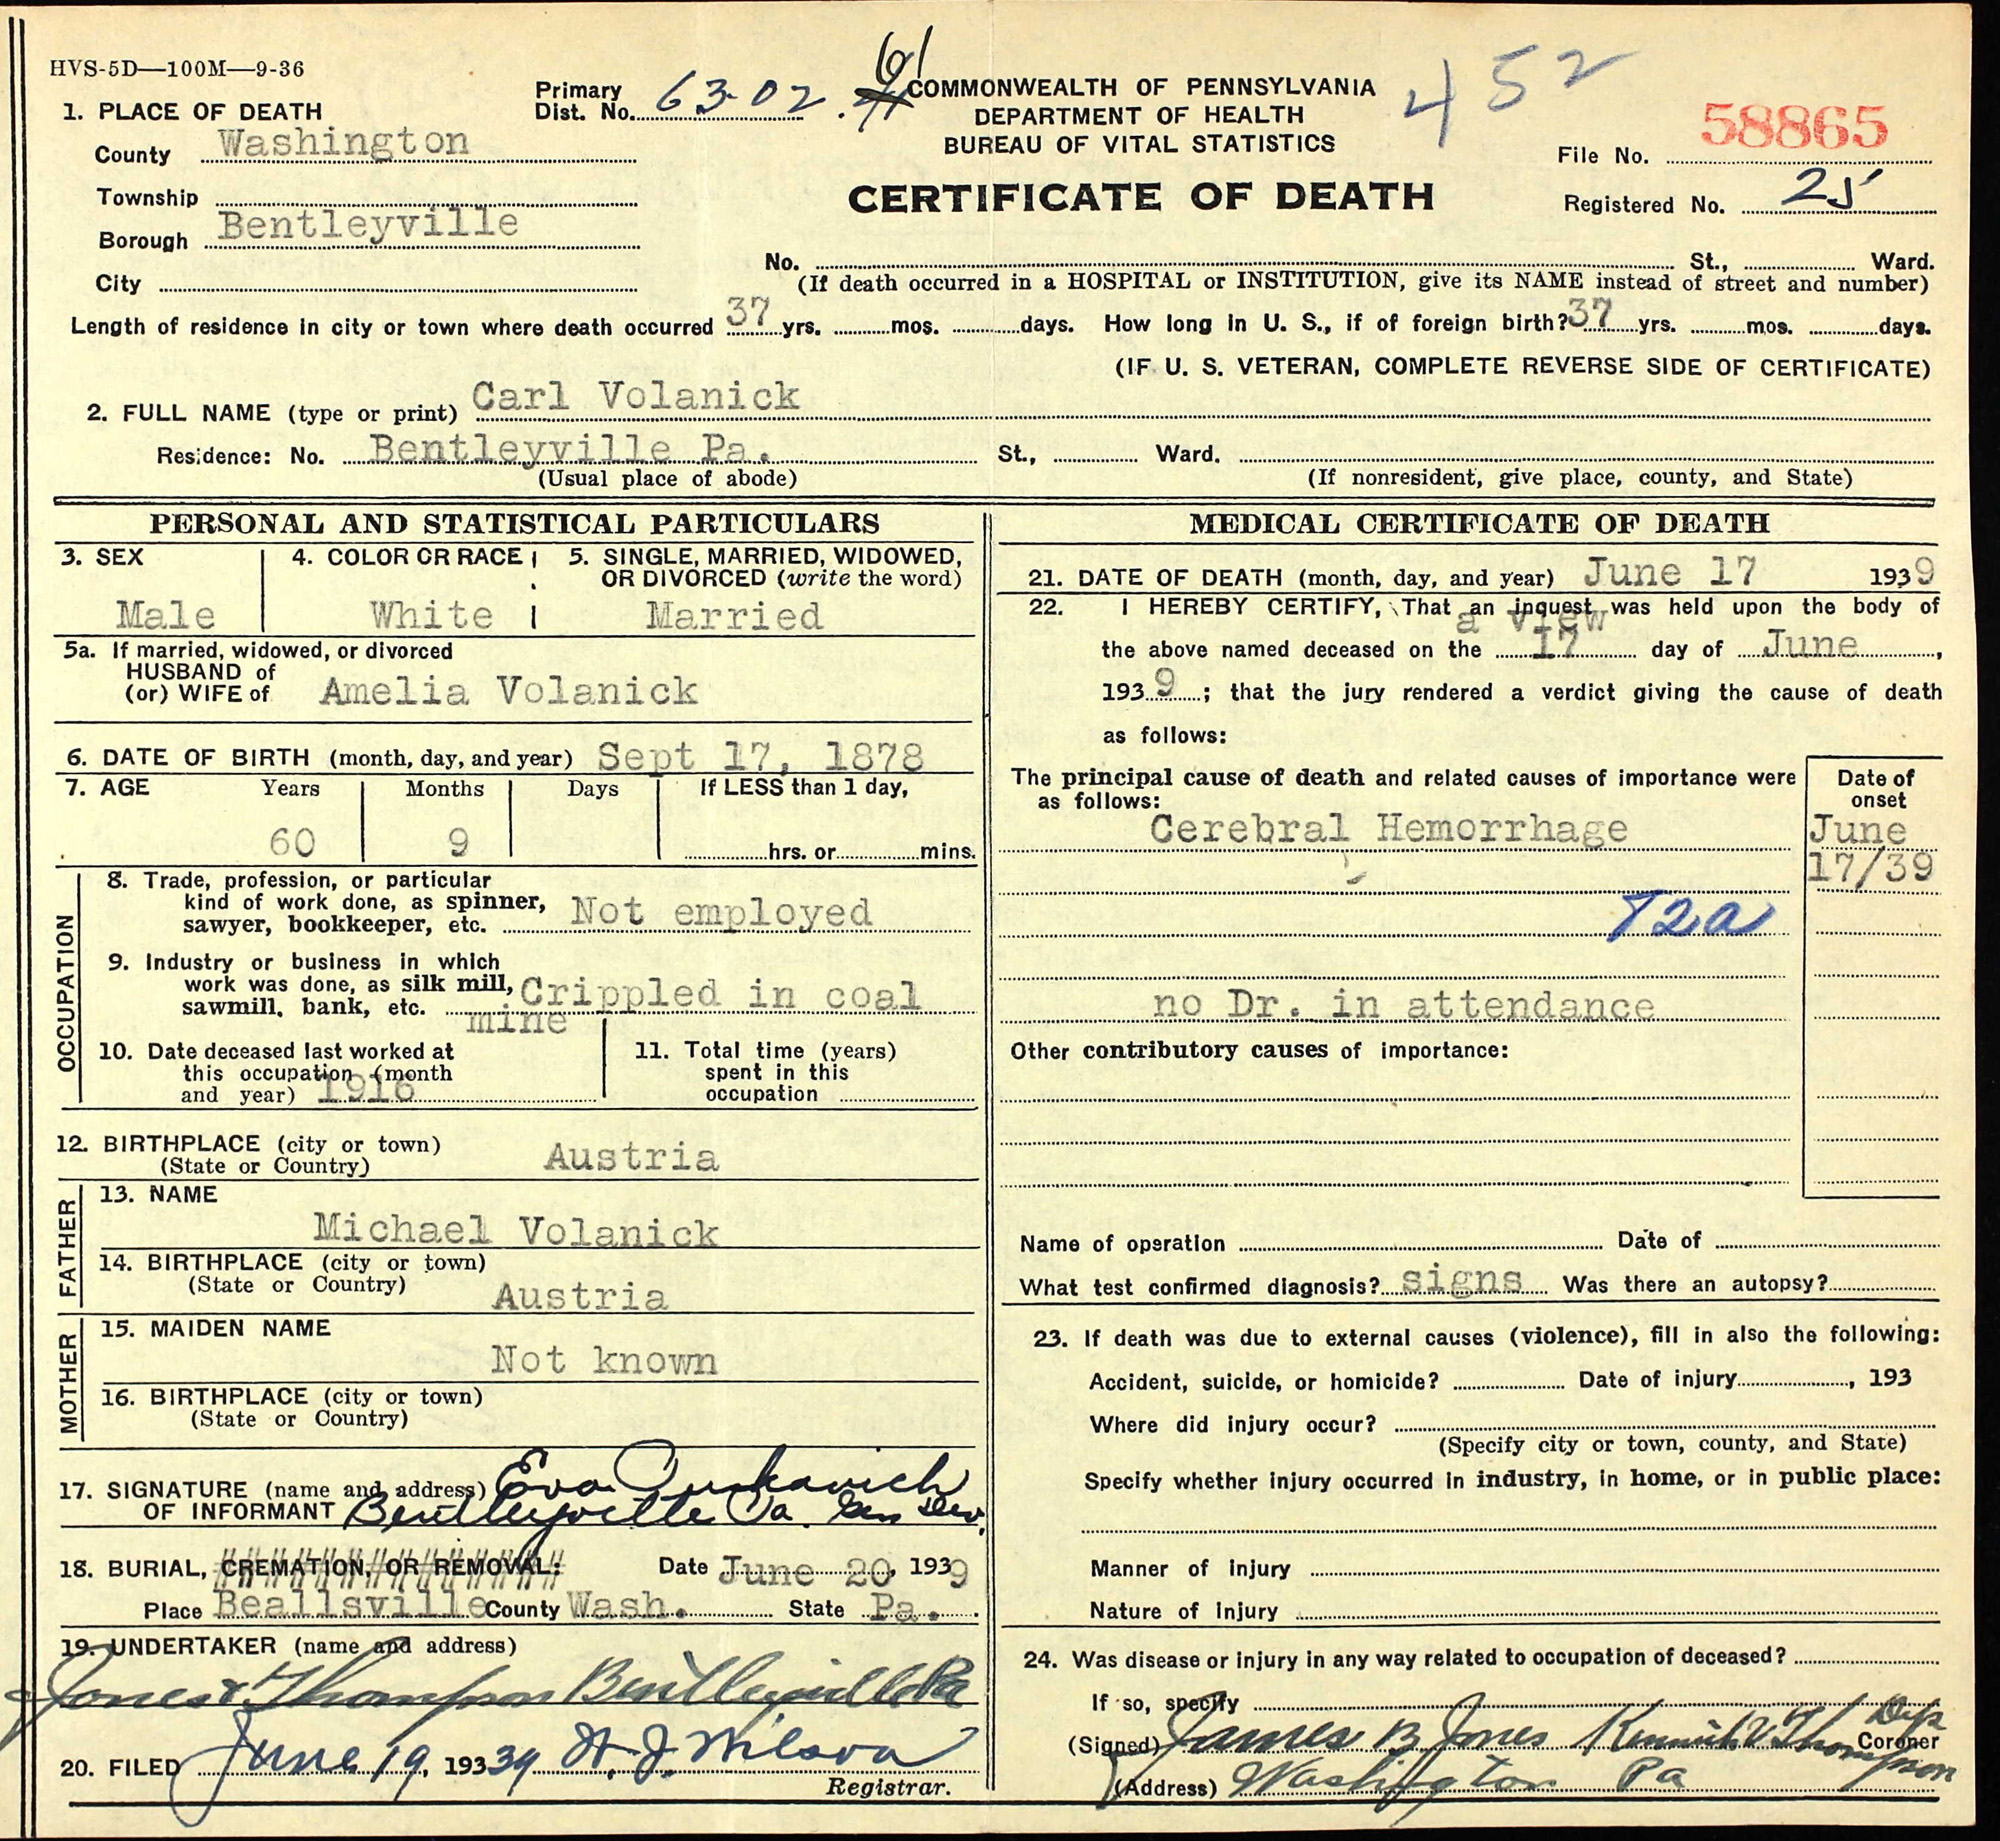 HVS-5D—100M—9-36
1. PLACE OF DEATH
County Washington
Township
Borough Bentleyville
City
Primary
Dist. No. 63-02
61
COMMONWEALTH OF PENNSYLVANIA
DEPARTMENT OF HEALTH
BUREAU OF VITAL STATISTICS
CERTIFICATE OF DEATH
452
58865
File No.
Registered No. 25
No. St., Ward.
(If death occurred in a HOSPITAL or INSTITUTION, give its NAME instead of street and number)
Length of residence in city or town where death occurred 37 yrs. mos. days. How long in U. S., if of foreign birth? 37 yrs. mos. days.
(IF U. S. VETERAN, COMPLETE REVERSE SIDE OF CERTIFICATE)
2. FULL NAME (type or print) Carl Volanick
Residence: No. Bentleyville Pa. St., Ward.
(Usual place of abode) (If nonresident, give place, county, and State)
PERSONAL AND STATISTICAL PARTICULARS
3. SEX
Male
4. COLOR OR RACE
White
5. SINGLE, MARRIED, WIDOWED,
OR DIVORCED (write the word)
Married
5a. If married, widowed, or divorced
HUSBAND of
(or) WIFE of Amelia Volanick
6. DATE OF BIRTH (month, day, and year) Sept 17, 1878
7. AGE Years Months Days If LESS than 1 day,
60 9 hrs. or mins.
OCCUPATION
8. Trade, profession, or particular
kind of work done, as spinner,
sawyer, bookkeeper, etc. Not employed
9. Industry or business in which
work was done, as silk mill,
sawmill, bank, etc. Crippled in coal
mine
10. Date deceased last worked at
this occupation (month
and year) 1916
11. Total time (years)
spent in this
occupation
12. BIRTHPLACE (city or town)
(State or Country) Austria
FATHER
13. NAME
Michael Volanick
14. BIRTHPLACE (city or town)
(State or Country) Austria
MOTHER
15. MAIDEN NAME
Not known
16. BIRTHPLACE (city or town)
(State or Country)
17. SIGNATURE (name and address) Eva
OF INFORMANT Bentleyville Pa. Gen Del.
18. BURIAL, CREMATION, OR REMOVAL: Date June 20, 1939
Place Beallsville County Wash. State Pa.
19. UNDERTAKER (name and address)
Jones & Thompson Bentleyville Pa
20. FILED June 19, 19339 H. J. Wilson
Registrar.
MEDICAL CERTIFICATE OF DEATH
21. DATE OF DEATH (month, day, and year) June 17 1939
22. I HEREBY CERTIFY, That an inquest was held upon the body of
a view
the above named deceased on the 17 day of June,
1939; that the jury rendered a verdict giving the cause of death
as follows:
The principal cause of death and related causes of importance were
as follows:
Cerebral Hemorrhage
Date of
onset
June
17/39
72a
no Dr. in attendance
Other contributory causes of importance:
Name of operation Date of
What test confirmed diagnosis? signs Was there an autopsy?
23. If death was due to external causes (violence), fill in also the following:
Accident, suicide, or homicide? Date of injury , 193
Where did injury occur?
(Specify city or town, county, and State)
Specify whether injury occurred in industry, in home, or in public place:
Manner of injury
Nature of injury
24. Was disease or injury in any way related to occupation of deceased?
If so, specify
(Signed) James B Jones Kenneth V Thompson Dep Coroner
(Address) Washington Pa